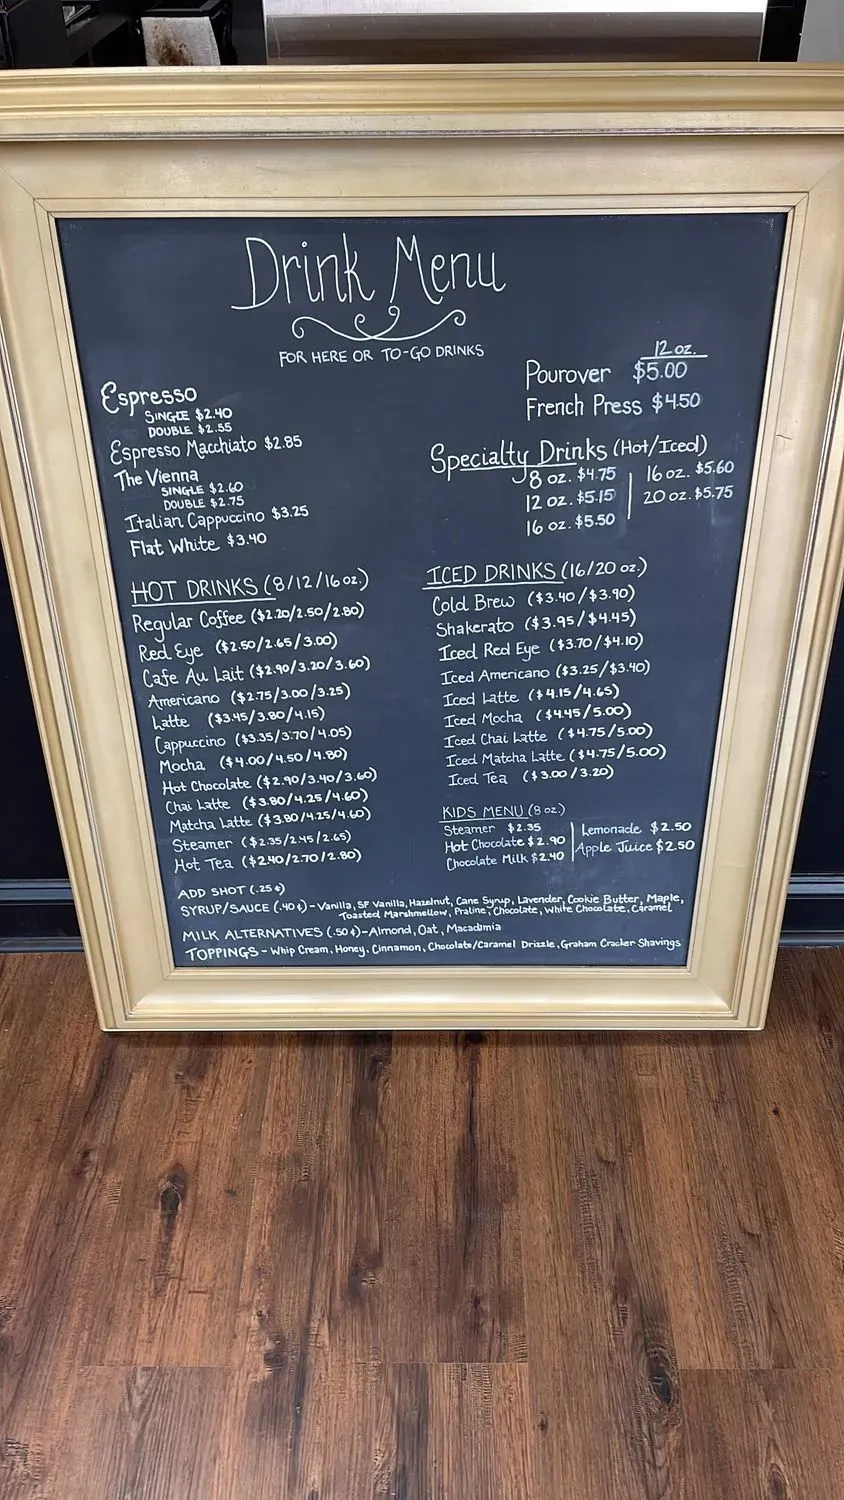 Drink Menu
FOR HERE OR TO-GO DRINKS
Espresso
SINGLE $2.40
DOUBLE $2.55
Espresso Macchiato $2.85
The Vienna
SINGLE $2.60
DOUBLE $2.75
Italian Cappuccino $3.25
Flat White $3.40
12 oz.
Pourover $5.00
French Press $4.50
Specialty Drinks (Hot/Iced)
8 oz. $4.75 | 16 oz. $5.60
12 oz. $5.15 | 20 oz. $5.75
16 oz. $5.50
HOT DRINKS (8/12/16 oz.)
Regular Coffee ($2.20/2.50/2.80)
Red Eye ($2.50/2.65/3.00)
Cafe Au Lait ($2.90/3.20/3.60)
Americano ($2.75/3.00/3.25)
Latte ($3.45/3.80/4.15)
Cappuccino ($3.35/3.70/4.05)
Mocha ($4.00/4.50/4.80)
Hot Chocolate ($2.90/3.40/3.60)
Chai Latte ($3.80/4.25/4.60)
Matcha Latte ($3.80/4.25/4.60)
Steamer ($2.35/2.45/2.65)
Hot Tea ($2.40/2.70/2.80)
ICED DRINKS (16/20 oz.)
Cold Brew ($3.40/$3.90)
Shakerato ($3.95/$4.45)
Iced Red Eye ($3.70/$4.10)
Iced Americano ($3.25/$3.40)
Iced Latte ($4.15/4.65)
Iced Mocha ($4.45/5.00)
Iced Chai Latte ($4.75/5.00)
Iced Matcha Latte ($4.75/5.00)
Iced Tea ($3.00/3.20)
KIDS MENU (8 oz.)
Steamer $2.35 | Lemonade $2.50
Hot Chocolate $2.90 | Apple Juice $2.50
Chocolate Milk $2.40
ADD SHOT (.25¢)
SYRUP/SAUCE (.40¢) - Vanilla, SF Vanilla, Hazelnut, Cane Syrup, Lavender, Cookie Butter, Maple,
Toasted Marshmellow, Praline, Chocolate, White Chocolate, Caramel
MILK ALTERNATIVES (.50¢) - Almond, Oat, Macadmia
TOPPINGS - Whip Cream, Honey, Cinnamon, Chocolate/Caramel Drizzle, Graham Cracker Shavings